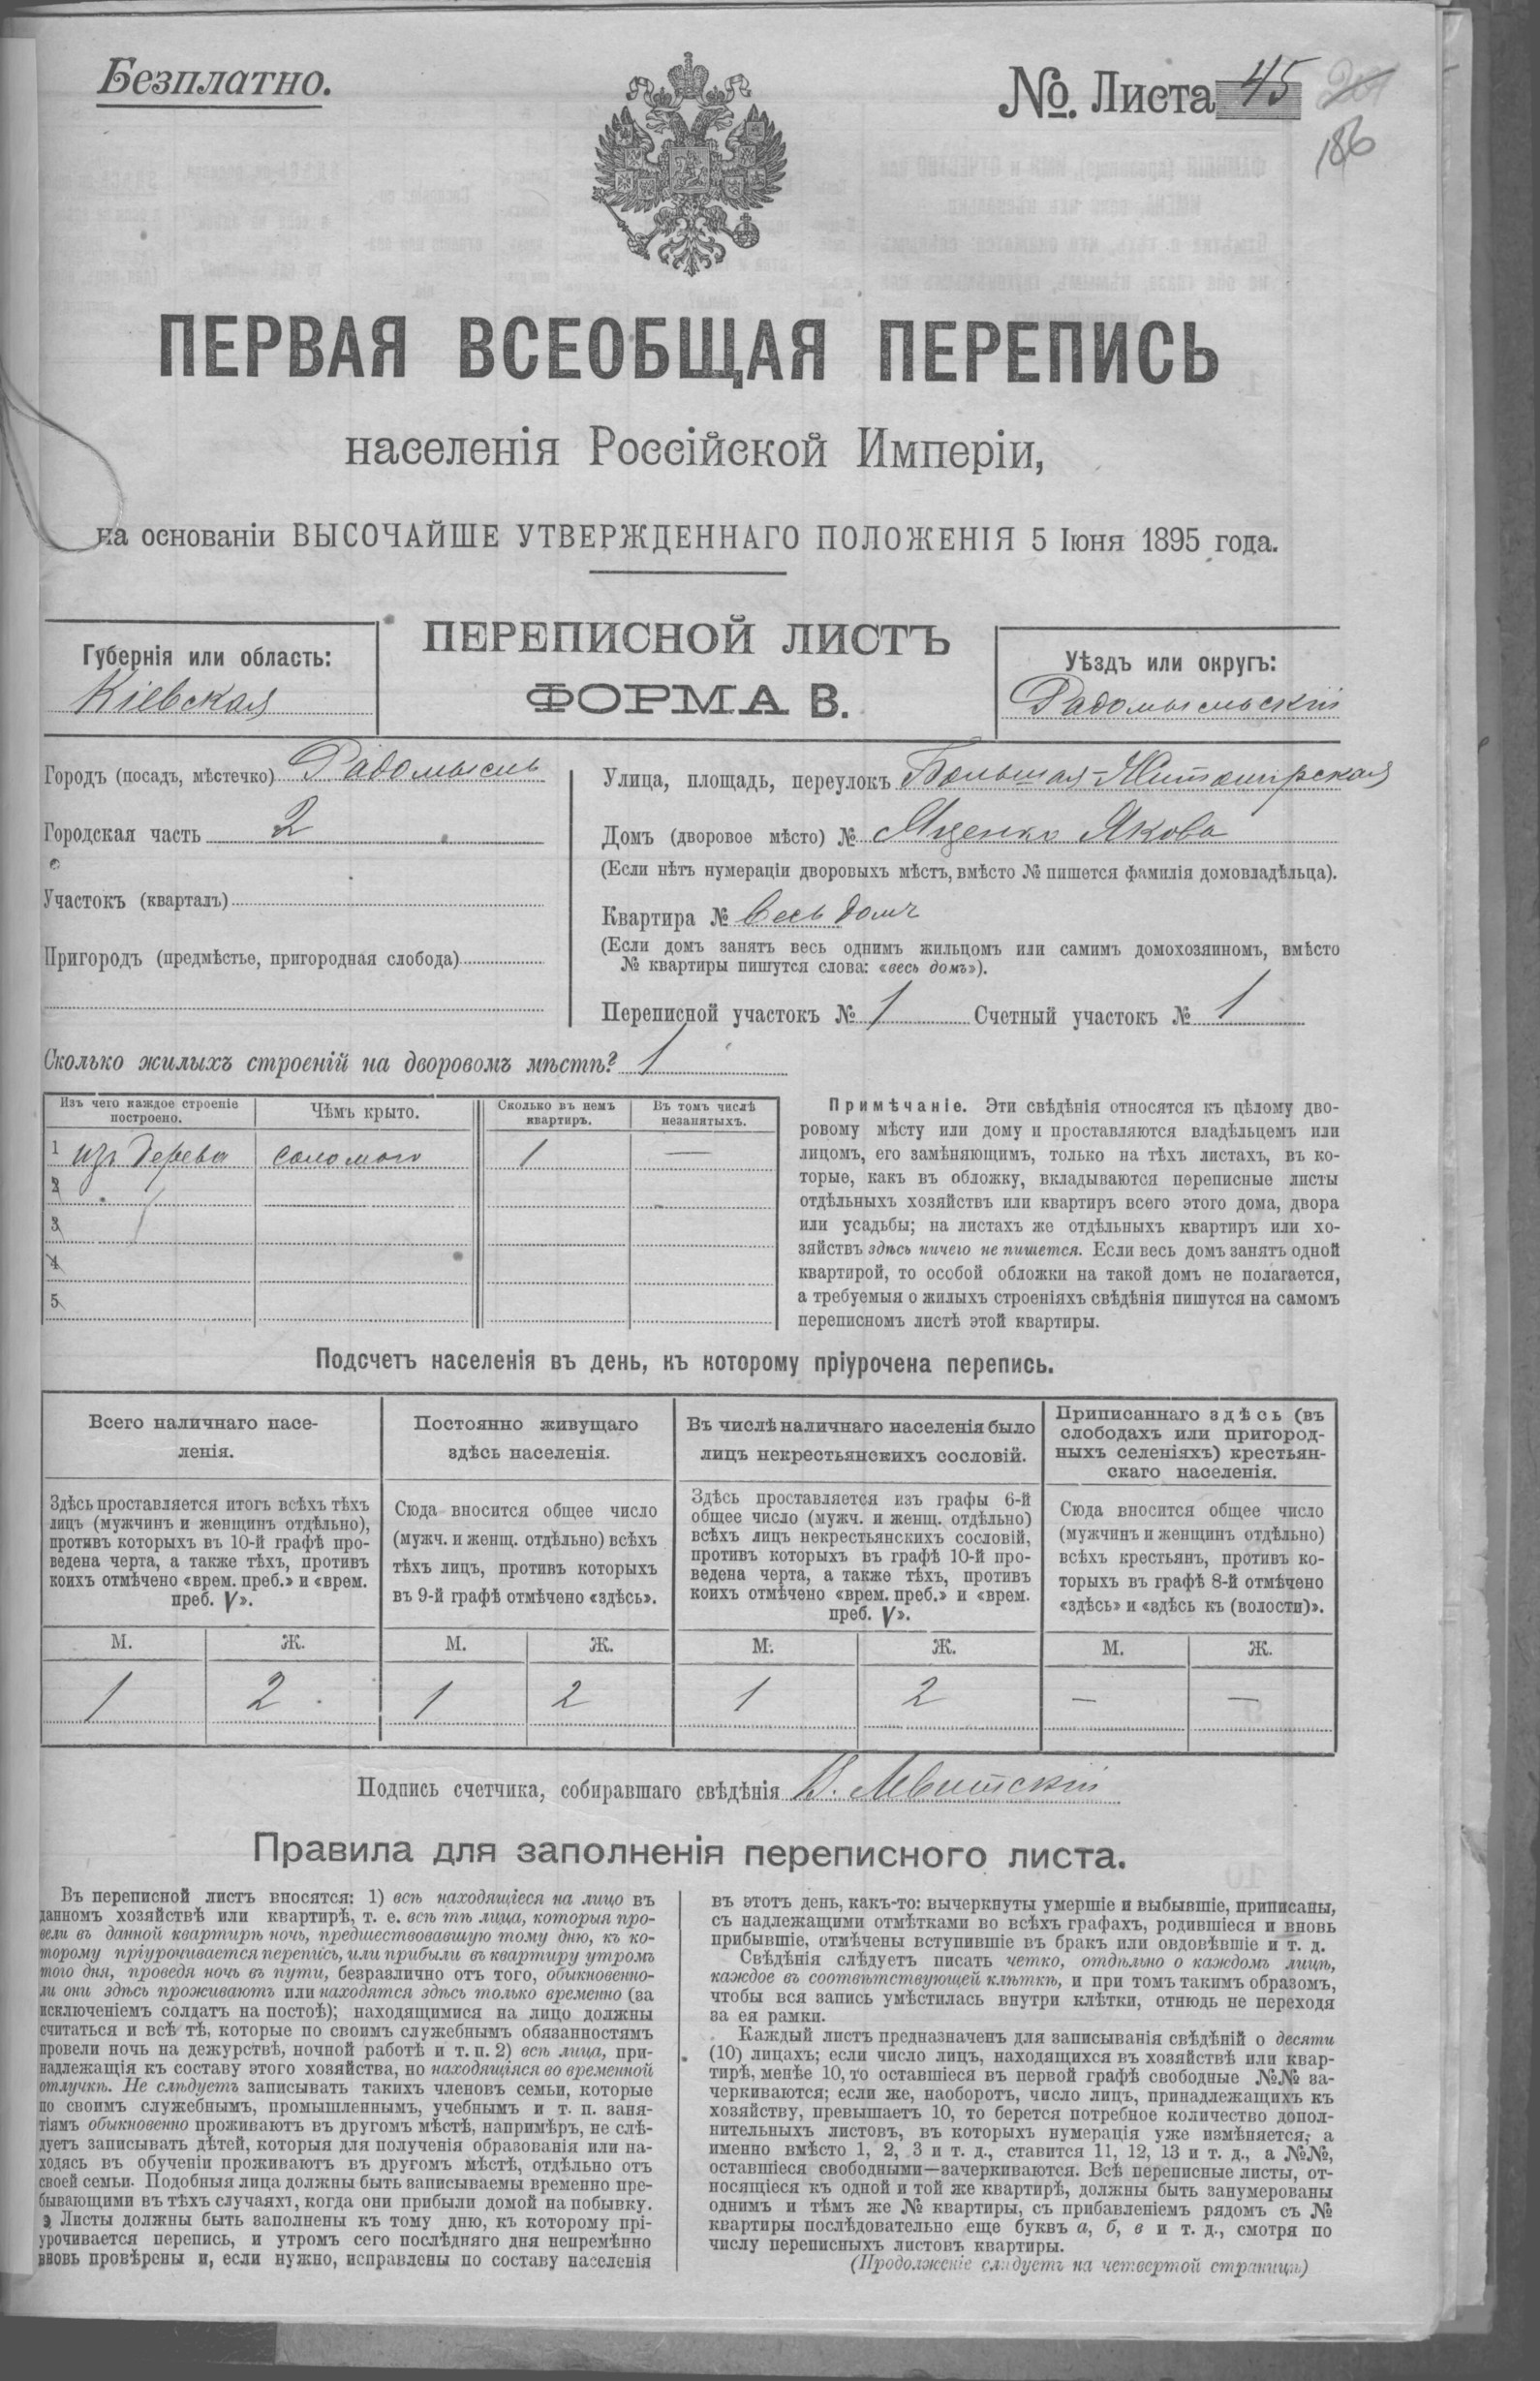 Безплатно.
№. Листа 45
186
ПЕРВАЯ ВСЕОБЩАЯ ПЕРЕПИСЬ
населенія Россійской Имперіи,
на основаніи ВЫСОЧАЙШЕ УТВЕРЖДЕННАГО ПОЛОЖЕНІЯ 5 Іюня 1895 года.
Губернія или область:
Кіевская
ПЕРЕПИСНОЙ ЛИСТЪ
ФОРМА В.
Уѣздъ или округъ:
Радомысльскій
Городъ (посадъ, мѣстечко) Радомысль
Городская часть 2
Участокъ (кварталъ)
Пригородъ (предмѣстье, пригородная слобода)
Улица, площадь, переулокъ Большая-Житомирская
Домъ (дворовое мѣсто) № Яценко Якова
(Если нѣтъ нумераціи дворовыхъ мѣстъ, вмѣсто № пишется фамилія домовладѣльца).
Квартира № весь домъ
(Если домъ занятъ весь однимъ жильцомъ или самимъ домохозяиномъ, вмѣсто
№ квартиры пишутся слова: «весь домъ»).
Переписной участокъ № 1 Счетный участокъ № 1
Сколько жилыхъ строеній на дворовомъ мѣстѣ? 1
Изъ чего каждое строеніе
построено.
Чѣмъ крыто.
Сколько въ немъ
квартиръ.
Въ томъ числѣ
незанятыхъ.
1 изъ дерева соломою 1 —
2
3
4
5
Примѣчаніе. Эти свѣдѣнія относятся къ цѣлому дво-
ровому мѣсту или дому и проставляются владѣльцемъ или
лицомъ, его замѣняющимъ, только на тѣхъ листахъ, въ ко-
торые, какъ въ обложку, вкладываются переписные листы
отдѣльныхъ хозяйствъ или квартиръ всего этого дома, двора
или усадьбы; на листахъ же отдѣльныхъ квартиръ или хо-
зяйствъ здѣсь ничего не пишется. Если весь домъ занятъ одной
квартирой, то особой обложки на такой домъ не полагается,
а требуемыя о жилыхъ строеніяхъ свѣдѣнія пишутся на самомъ
переписномъ листѣ этой квартиры.
Подсчетъ населенія въ день, къ которому пріурочена перепись.
Всего наличнаго насе-
ленія.
Здѣсь проставляется итогъ всѣхъ тѣхъ
лицъ (мужчинъ и женщинъ отдѣльно),
противъ которыхъ въ 10-й графѣ про-
ведена черта, а также тѣхъ, противъ
коихъ отмѣчено «врем. преб.» и «врем.
преб. V».
Постоянно живущаго
здѣсь населенія.
Сюда вносится общее число
(мужч. и женщ. отдѣльно) всѣхъ
тѣхъ лицъ, противъ которыхъ
въ 9-й графѣ отмѣчено «здѣсь».
Въ числѣ наличнаго населенія было
лицъ некрестьянскихъ сословій.
Здѣсь проставляется изъ графы 6-й
общее число (мужч. и женщ. отдѣльно)
всѣхъ лицъ некрестьянскихъ сословій,
противъ которыхъ въ графѣ 10-й про-
ведена черта, а также тѣхъ, противъ
коихъ отмѣчено «врем. преб.» и «врем.
преб. V».
Приписаннаго здѣсь (въ
слободахъ или пригород-
ныхъ селеніяхъ) крестьян-
скаго населенія.
Сюда вносится общее число
(мужчинъ и женщинъ отдѣльно)
всѣхъ крестьянъ, противъ ко-
торыхъ въ графѣ 8-й отмѣчено
«здѣсь» и «здѣсь къ (волости)».
М. Ж. М. Ж. М. Ж. М. Ж.
1 2 1 2 1 2 — —
Подпись счетчика, собиравшаго свѣдѣнія В. Левитскій
Правила для заполненія переписного листа.
Въ переписной листъ вносятся: 1) всѣ находящіеся на лицо въ
данномъ хозяйствѣ или квартирѣ, т. е. всѣ тѣ лица, которыя про-
вели въ данной квартирѣ ночь, предшествовавшую тому дню, къ ко-
торому пріурочивается перепись, или прибыли въ квартиру утромъ
того дня, проведя ночь въ пути, безразлично отъ того, обыкновенно-
ли они здѣсь проживаютъ или находятся здѣсь только временно (за
исключеніемъ солдатъ на постоѣ); находящимися на лицо должны
считаться и всѣ тѣ, которые по своимъ служебнымъ обязанностямъ
провели ночь на дежурствѣ, ночной работѣ и т. п. 2) всѣ лица, при-
надлежащія къ составу этого хозяйства, но находящіяся во временной
отлучкѣ. Не слѣдуетъ записывать такихъ членовъ семьи, которые
по своимъ служебнымъ, промышленнымъ, учебнымъ и т. п. заня-
тіямъ обыкновенно проживаютъ въ другомъ мѣстѣ, напримѣръ, не слѣ-
дуетъ записывать дѣтей, которыя для полученія образованія или на-
ходясь въ обученіи проживаютъ въ другомъ мѣстѣ, отдѣльно отъ
своей семьи. Подобныя лица должны быть записываемы временно пре-
бывающими въ тѣхъ случаяхъ, когда они прибыли домой на побывку.
Листы должны быть заполнены къ тому дню, къ которому прі-
урочивается перепись, и утромъ сего послѣдняго дня непремѣнно
вновь провѣрены и, если нужно, исправлены по составу населенія
въ этотъ день, какъ-то: вычеркнуты умершіе и выбывшіе, приписаны,
съ надлежащими отмѣтками во всѣхъ графахъ, родившіеся и вновь
прибывшіе, отмѣчены вступившіе въ бракъ или овдовѣвшіе и т. д.
Свѣдѣнія слѣдуетъ писать четко, отдѣльно о каждомъ лицѣ,
каждое въ соотвѣтствующей клѣткѣ, и при томъ такимъ образомъ,
чтобы вся запись умѣстилась внутри клѣтки, отнюдь не переходя
за ея рамки.
Каждый листъ предназначенъ для записыванія свѣдѣній о десяти
(10) лицахъ; если число лицъ, находящихся въ хозяйствѣ или квар-
тирѣ, менѣе 10, то оставшіеся въ первой графѣ свободные №№ за-
черкиваются; если же, наоборотъ, число лицъ, принадлежащихъ къ
хозяйству, превышаетъ 10, то берется потребное количество допол-
нительныхъ листовъ, въ которыхъ нумерація уже измѣняется, а
именно вмѣсто 1, 2, 3 и т. д., ставится 11, 12, 13 и т. д., а №№,
оставшіеся свободными—зачеркиваются. Всѣ переписные листы, от-
носящіеся къ одной и той же квартирѣ, должны быть занумерованы
однимъ и тѣмъ же № квартиры, съ прибавленіемъ рядомъ съ №
квартиры послѣдовательно еще буквъ а, б, в и т. д., смотря по
числу переписныхъ листовъ квартиры.
(Продолженіе слѣдуетъ на четвертой страницѣ)